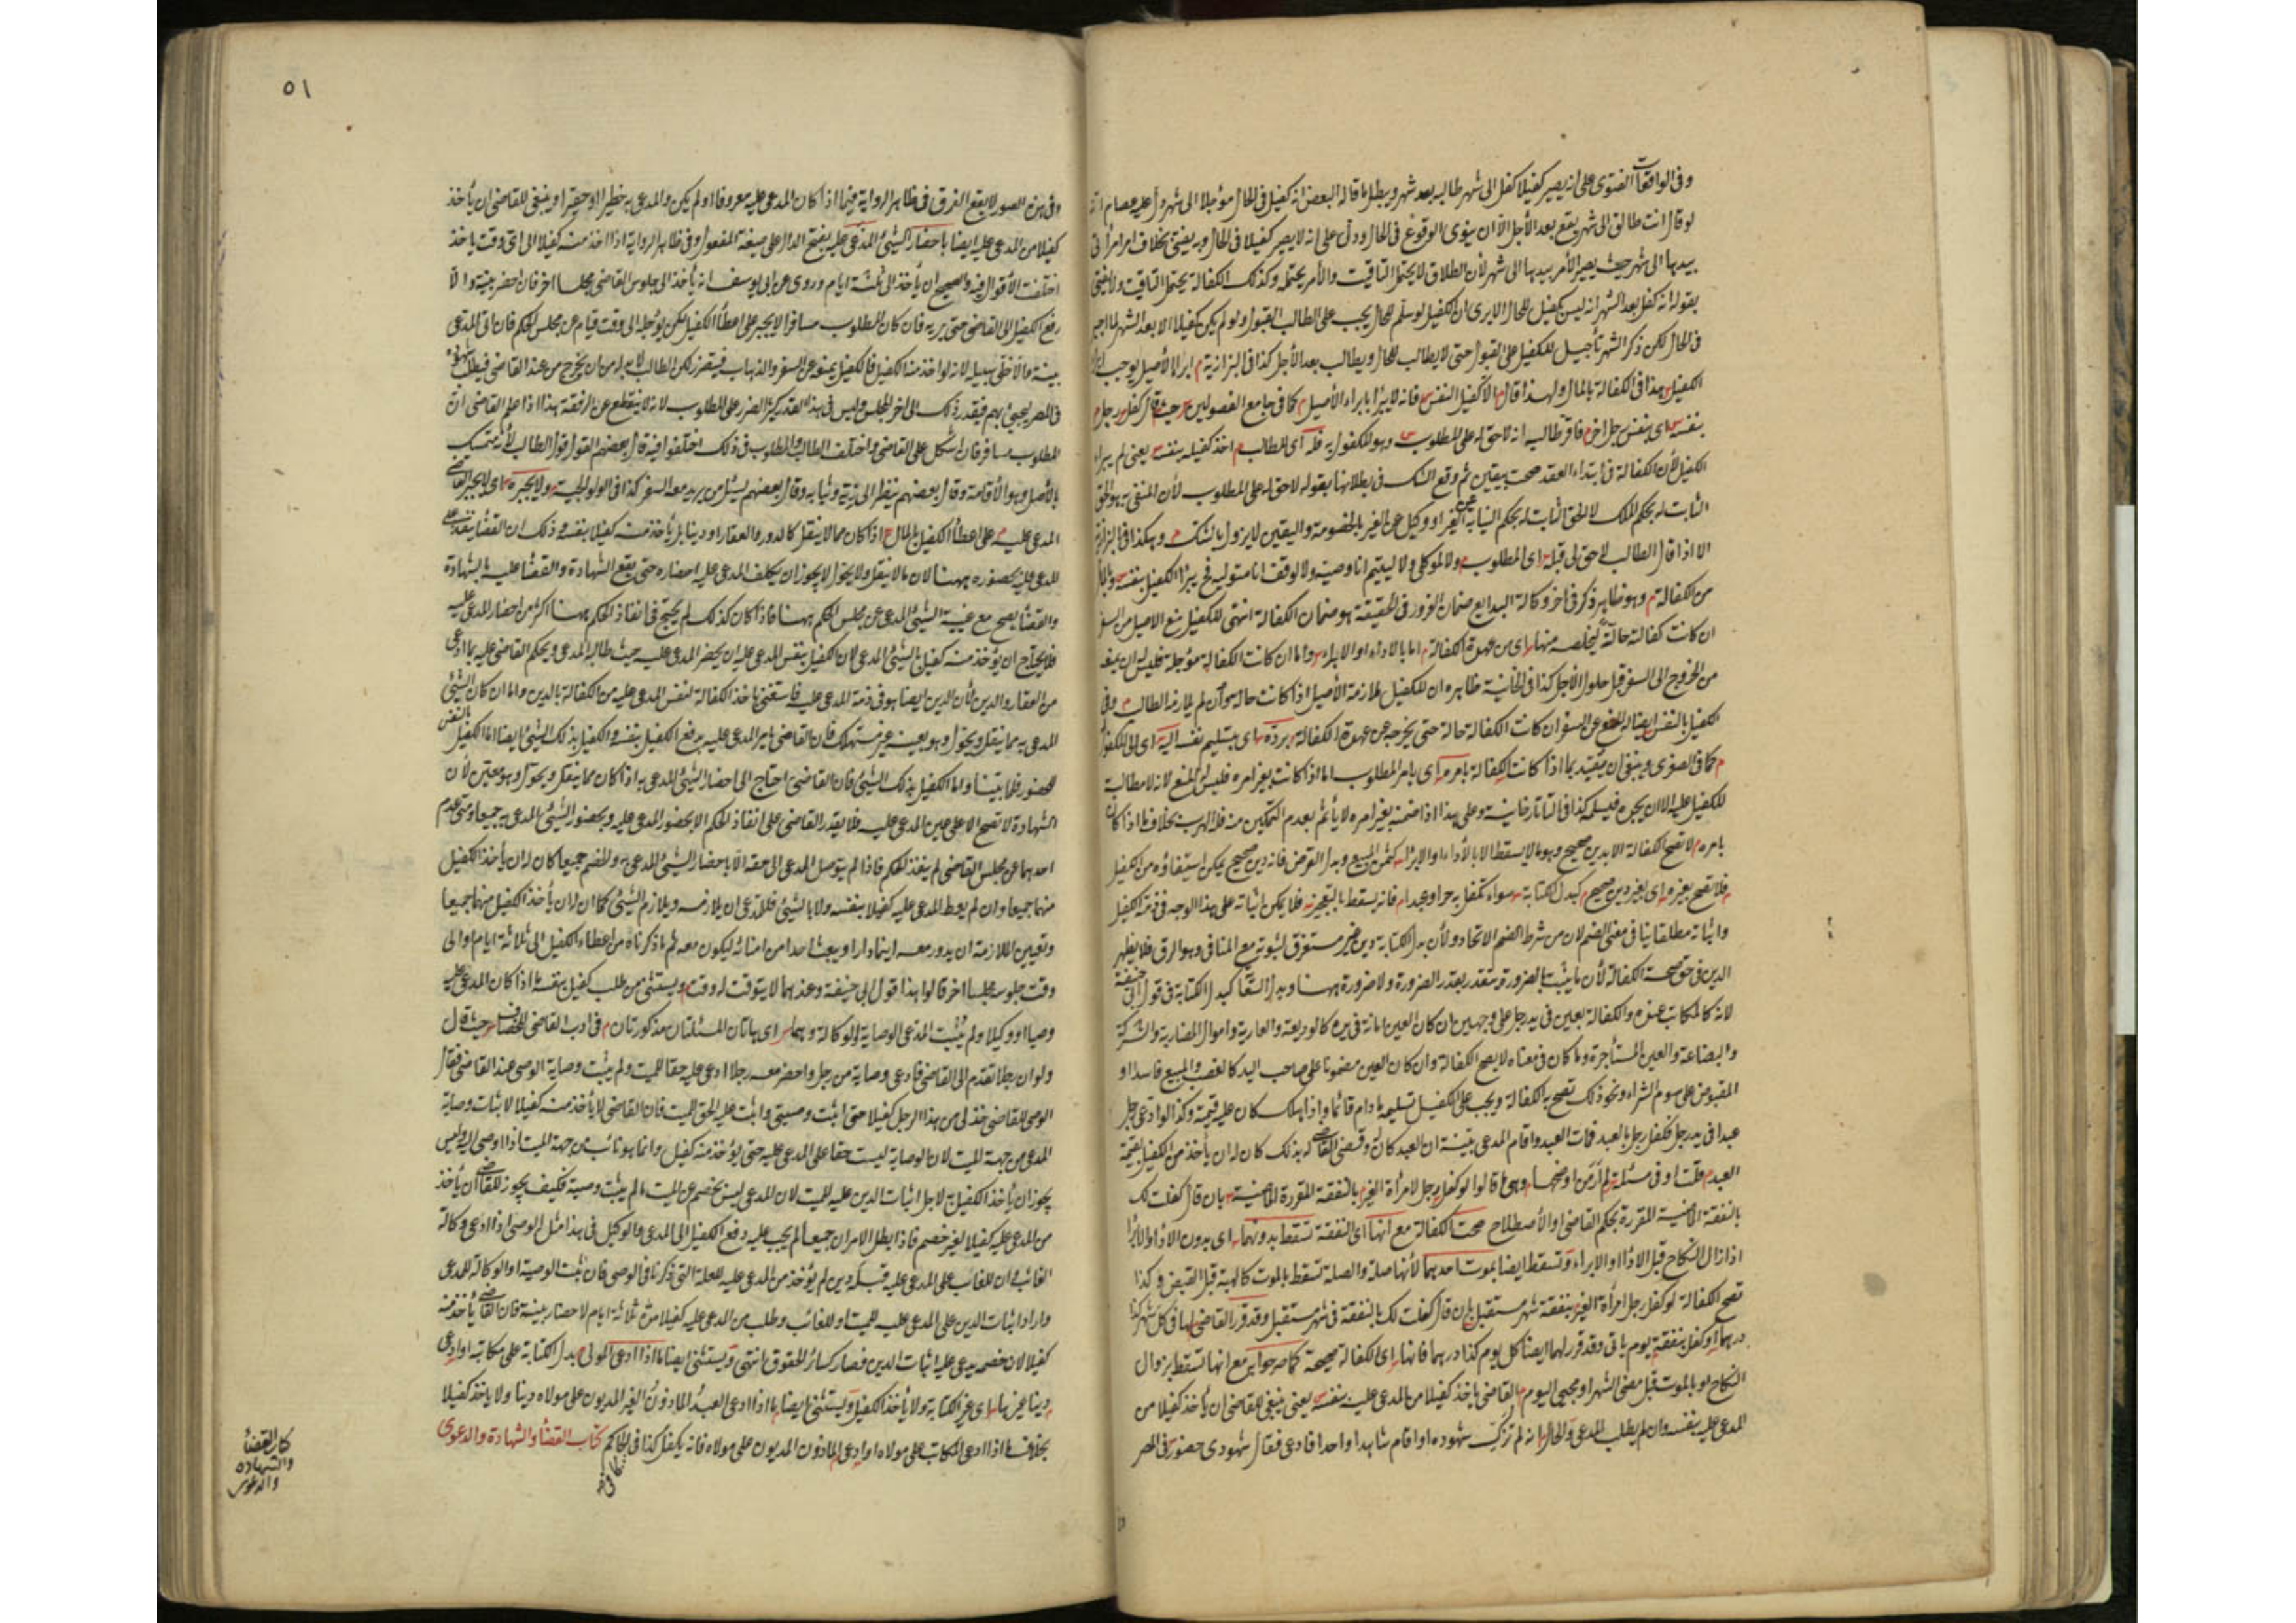 وفى الواقعات الفتوى على انه يصير كفيلا كفل الى شهر طالبه بعد شهر ويبطل ما قاله البعض انه كفيل فى الحال مؤجلا الى شهر
لو قال انت طالق الى شهر يقع بعد الأجل الا ان ينوى الوقوع فى الحال ودل على انه لا يصير كفيلا فى الحال وبه يفتى بخلاف امر امرأتى
بيدها الى شهر حيث يصير الأمر بيدها الى شهر لأن الطلاق لا يحتمل التأقيت والأمر يحتمله وكذلك الكفالة يحتمل التأقيت ولا يفتى
بقوله انه كفل بعد الشهر انه ليس بكفيل للحال الا يرى ان الكفيل لو سلم للحال يجب على الطالب القبول ولو لم يكن كفيلا الا بعد الشهر لما اجبر
فى الحال لكن ذكر الشهر تأجيل للكفيل على القبول حتى لا يطالب للحال ويطالب بعد الأجل كذا فى البزازية م ابراء الأصيل يوجب ابراء
الكفيل هذا فى الكفالة بالمال ولهذا قال الا كفيل النفس فانه لا يبرأ بابراء الأصيل كما فى جامع الفصولين حيث قال كفل رجل
بنفسه اى بنفس رجل اخر فاقر طالبه انه لا حق له على المطلوب وهو المكفول به فله اى للطالب اخذ كفيله بنفسه يعنى لم يبرأ
الكفيل لأن الكفالة فى ابتداء العقد صحت بيقين ثم وقع الشك فى بطلانها بقوله لا حق له على المطلوب لأن المنفى به هو الحق
الثابت له بحكم الملك لا الحق الثابت له بحكم النيابة عن الغير او وكيل عن الغير بالخصومة واليقين لا يزول بالشك م وهكذا فى البزازية
الا اذا قال الطالب لا حق لى قبله اى المطلوب ولا لموكلى ولا ليتيم انا وصيه ولا لوقف انا متوليه فح يبرأ الكفيل بنفسه
من الكفالة م وهو ظاهر ذكر فى اخر وكالة البدايع ضمان الغرور فى الحقيقة هو ضمان الكفالة انتهى للكفيل منع الاصيل من السفر
ان كانت كفالته حالة ليخلصه منها اى من عهدة الكفالة اما بالاداء او الابراء واما ان كانت الكفالة مؤجلة فليس له ان يمنعه
من الخروج الى السفر قبل حلول الاجل كذا فى الخانية ظاهره ان للكفيل ملازمة الأصيل اذا كانت حالة سواء لم يلازمه الطالب م وفى
الكفيل بالنفس ايضا له المنع عن السفر ان كانت الكفالة حالة حتى يخرجه عن عهدة الكفالة برده اى بتسليم نفسه اليه اى الى المكفول
م كما فى الصغرى وينبغى ان يقيد بما اذا كانت الكفالة بامره اى بامر المطلوب اما اذا كانت بغير امره فليس له المنع لانه لا مطالبة
للكفيل عليه الا ان يجبره فيسلمه كذا فى التاتارخانية وعلى هذا اذا ضمنه بغير امره لا يأثم بعدم التمكين منه فله الهرب بخلاف ما اذا كان
بامره م لا تصح الكفالة الا بدين صحيح وهو ما لا يسقط الا بالأداء او الابراء كثمن المبيع وبدل القرض فانه دين صحيح يمكن استيفاؤه من الكفيل
فلا تصح بغيره اى بغير دين صحيح كبدل الكتابة سواء تكفل به حر او عبد فانه يسقط بالتعجيز فلا يمكن اثباته على هذا الوجه فى ذمة الكفيل
واثباته مطلقا ينافى معنى الضم لان من شرط الضم الاتحاد ولأن بدل الكتابة دين غير مستقر لثبوته مع المنافى وهو الرق فلا يظهر
الدين فى حق صحة الكفالة لأن ما يثبت بالضرورة يتقدر بقدر الضرورة ولا ضرورة ههنا وبدل السعاية كبدل الكتابة فى قول ابى حنيفة
لانه كالمكاتب عنده والكفالة بعين فى يد رجل على وجهين ان كان العين امانة فى يده كالوديعة والعارية واموال المضاربة والشركة
والبضاعة والعين المستأجرة وما كان فى معناه لا يصح الكفالة وان كان العين مضمونا على صاحب اليد كالغصب والمبيع فاسدا او
المقبوض على سوم الشراء ونحو ذلك تصح به الكفالة ويجب على الكفيل تسليمه ما دام قائما واذا هلك كان عليه قيمته وكذا لو ادعى رجل
عبدا فى يد رجل فكفل رجل بالعبد فمات العبد واقام المدعى بينة ان العبد كان له وقضى القاضى له بذلك كان له ان يأخذ من الكفيل بقيمة
العبد م قلت او فى مسئلة لم ار من اوضحها وهى ما قالوا لو كفل رجل لامرأة الغير بالنفقة المقررة الماضية بان قال كفلت لك
بالنفقة الماضية المقررة بحكم القاضى او الأصطلاح صحت الكفالة مع انها اى النفقة تسقط بدونهما اى بدون الأداء والابراء
اذا زال النكاح قبل الاداء او الابراء وتسقط ايضا بموت احدهما لأنها صلة والصلة تسقط بالموت كالهبة قبل القبض وكذا
تصح الكفالة لو كفل رجل امرأة الغير بنفقة شهر مستقبل بان قال كفلت لك بالنفقة فى شهر مستقبل وقد قرر القاضى لها فى كل شهر كذا
درهما او كفل بنفقة يوم يأتى وقد قرر لهما ايضا كل يوم كذا درهما فانها اى الكفالة صحيحة كما صرحوا به مع انها تسقط بزوال
النكاح او بالموت قبل مضى الشهر او مجيئ اليوم م القاضى يأخذ كفيلا من المدعى عليه بنفسه يعنى ينبغى للقاضى ان يأخذ كفيلا من
المدعى عليه بنفسه وان لم يطلب المدعى والحال انه لم تزك شهوده او اقام شاهدا واحدا فادعى فقال شهودى حضور فى المصر
٥١
وفى هذه الصور لا يقع الفرق فى ظاهر الرواية فيما اذا كان المدعى عليه معروفا او لم يكن والمدعى به خطيرا او حقيرا وينبغى للقاضى ان يأخذ
كفيلا من المدعى عليه ايضا باحضار الشيئ المدعى عليه بفتح الدال على صيغة المفعول وفى ظاهر الرواية اذا اخذ منه كفيلا الى اى وقت يأخذ
اختلفت الأقوال فيه والصحيح ان يأخذ الى ثلثة ايام وروى عن ابى يوسف انه يأخذ الى جلوس القاضى مجلسا اخر فان احضر بينة والا
رفع الكفيل الى القاضى حتى يبريه فان كان المطلوب مسافرا لا يجبر على اعطاء الكفيل لكن يؤجله الى وقت قيامه عن مجلس الحكم فان اتى المدعى
بينة والا خلى سبيله لانه لو اخذ منه الكفيل فالكفيل يمنعه عن السفر والذهاب فيتضرر لكن الطالب لا بد له من ان يخرج من عند القاضى فيطلب شهوده
فى المصر يجيئ بهم فيقدر ذلك الى اخر المجلس وليس فى هذا القدر كثير الضرر على المطلوب لانه لا ينقطع عن الرفقة هذا اذا علم القاضى ان
المطلوب مسافر فان اشكل على القاضى واختلف الطالب والمطلوب فى ذلك اختلفوا فيه قال بعضهم القول قول الطالب لأنه متمسك
بالأصل وهو الأقامة وقال بعضهم ينظر الى زيه وثيابه وقال بعضهم يسئل من يريد معه السفر كذا فى الولوالجية ولا يجبره اى لا يجبر القاضى
المدعى عليه على اعطاء الكفيل بالمال اذا كان مما لا ينقل كالدور والعقار او دينا بل يأخذ منه كفيلا بنفسه وذلك ان القضاء ينفذ على
المدعى عليه بحضوره ههنا لان ما لا ينقل ولا يحول لا يجوز ان يكلف المدعى عليه احضاره حتى يقع الشهادة والقضاء عليه بالشهادة
والقضاء يصح مع غيبة الشيئ المدعى عن مجلس الحكم ههنا فاذا كان كذلك لم يحتج فى انفاذ الحكم ههنا اكثر من احضار المدعى عليه
فلا يحتاج ان يؤخذ منه كفيل بالشيئ المدعى لان الكفيل بنفس المدعى عليه ان يحضر المدعى عليه حيث طالبه المدعى ويحكم القاضى عليه بما ادعى
من العقار والدين لأن الدين ايضا هو فى ذمة المدعى عليه فاستغنى باخذ الكفالة لنفس المدعى عليه من الكفالة بالدين واما ان كان الشيئ
المدعى به مما ينقل ويحول وهو بعينه غير مستهلك فان القاضى يامر المدعى عليه بدفع الكفيل بنفسه والكفيل بذلك الشيئ ايضا اما الكفيل بالنفس
للحضور فلما بيناه واما الكفيل بذلك الشيئ فان القاضى احتاج الى احضار الشيئ المدعى به اذا كان مما ينقل ويحول وهو معين لأن
الشهادة لا تصح الا على عين المدعى عليه فلا يقدر القاضى على انفاذ الحكم الا بحضور المدعى عليه وبحضور الشيئ المدعى به جميعا ومتى عدم
احدهما عن مجلس القاضى لم ينفذ الحكم فاذا لم يتوصل المدعى الى حقه الا باحضار الشيئ المدعى به والخصم جميعا كان له ان يأخذ الكفيل
منهما جميعا وان لم يعط المدعى عليه كفيلا بنفسه ولا بالشيئ فللمدعى ان يلازمه ويلازم الشيئ كما ان له ان يأخذ الكفيل منهما جميعا
وتعيين الملازمة ان يدور معه اينما دار او يبعث احدا من امنائه ليكون معه ثم ما ذكرناه من اعطاء الكفيل الى ثلاثة ايام او الى
وقت جلوسه مجلسا اخر قالوا هذا قول ابى حنيفة وعندهما لا يتوقت له وقت م ويستثنى من طلب كفيل بنفسه ما اذا كان المدعى عليه
وصيا او وكيلا ولم يثبت المدعى الوصاية والوكالة وهما اى هاتان المسئلتان مذكورتان م فى ادب القاضى للخصاف حيث قال
ولو ان رجلا تقدم الى القاضى فادعى وصاية من رجل واحضر معه رجلا ادعى عليه حقا للميت ولم يثبت وصاية الوصى عند القاضى فقال
الوصى للقاضى خذ لى من هذا الرجل كفيلا حتى اثبت وصيتى واثبت عليه الحق للميت فان القاضى لا يأخذ منه كفيلا لاثبات وصاية
المدعى من جهة الميت لان الوصاية ليست حقا على المدعى عليه حتى يؤخذ منه كفيل وانما هو نائب من جهة الميت اذا اوصى اليه وليس
يجوز ان يأخذ الكفيل لاجل اثبات الدين عليه للميت لان المدعى ليس بخصم عن الميت ما لم يثبت وصيته فكيف يجوز للقاضى ان يأخذ
من المدعى عليه كفيلا لغير خصم فاذا بطل الامران جميعا لم يجب عليه دفع الكفيل الى المدعى والوكيل فى هذا مثل الوصى اذا ادعى وكالة
الغائب ان للغائب على المدعى عليه قبله دين لم يؤخذ من المدعى عليه للعلة التى ذكرنا فى الوصى فان ثبت الوصية او الوكالة للمدعى
واراد اثبات الدين على المدعى عليه للميت او للغائب وطلب من المدعى عليه كفيلا مدة ثلاثة ايام لاحضار بينة فان القاضى يأخذ منه
كفيلا لان خصمه يدعى عليه اثبات الدين فصار كسائر الحقوق انتهى ويستثنى ايضا ما اذا ادعى المولى بدل الكتابة على مكاتبه او ادعى
دينا غيرها اى غير الكتابة ولا يأخذ الكفيل ويستثنى ايضا ما اذا ادعى العبد المأذون الغير المديون على مولاه دينا ولا يأخذ كفيلا
بخلاف ما اذا ادعى المكاتب على مولاه او ادعى المأذون المديون على مولاه فانه يكفل كذا فى الحاكم كتاب القضاء والشهادة والدعوى
كتاب القضاء
والشهادة
والدعوى